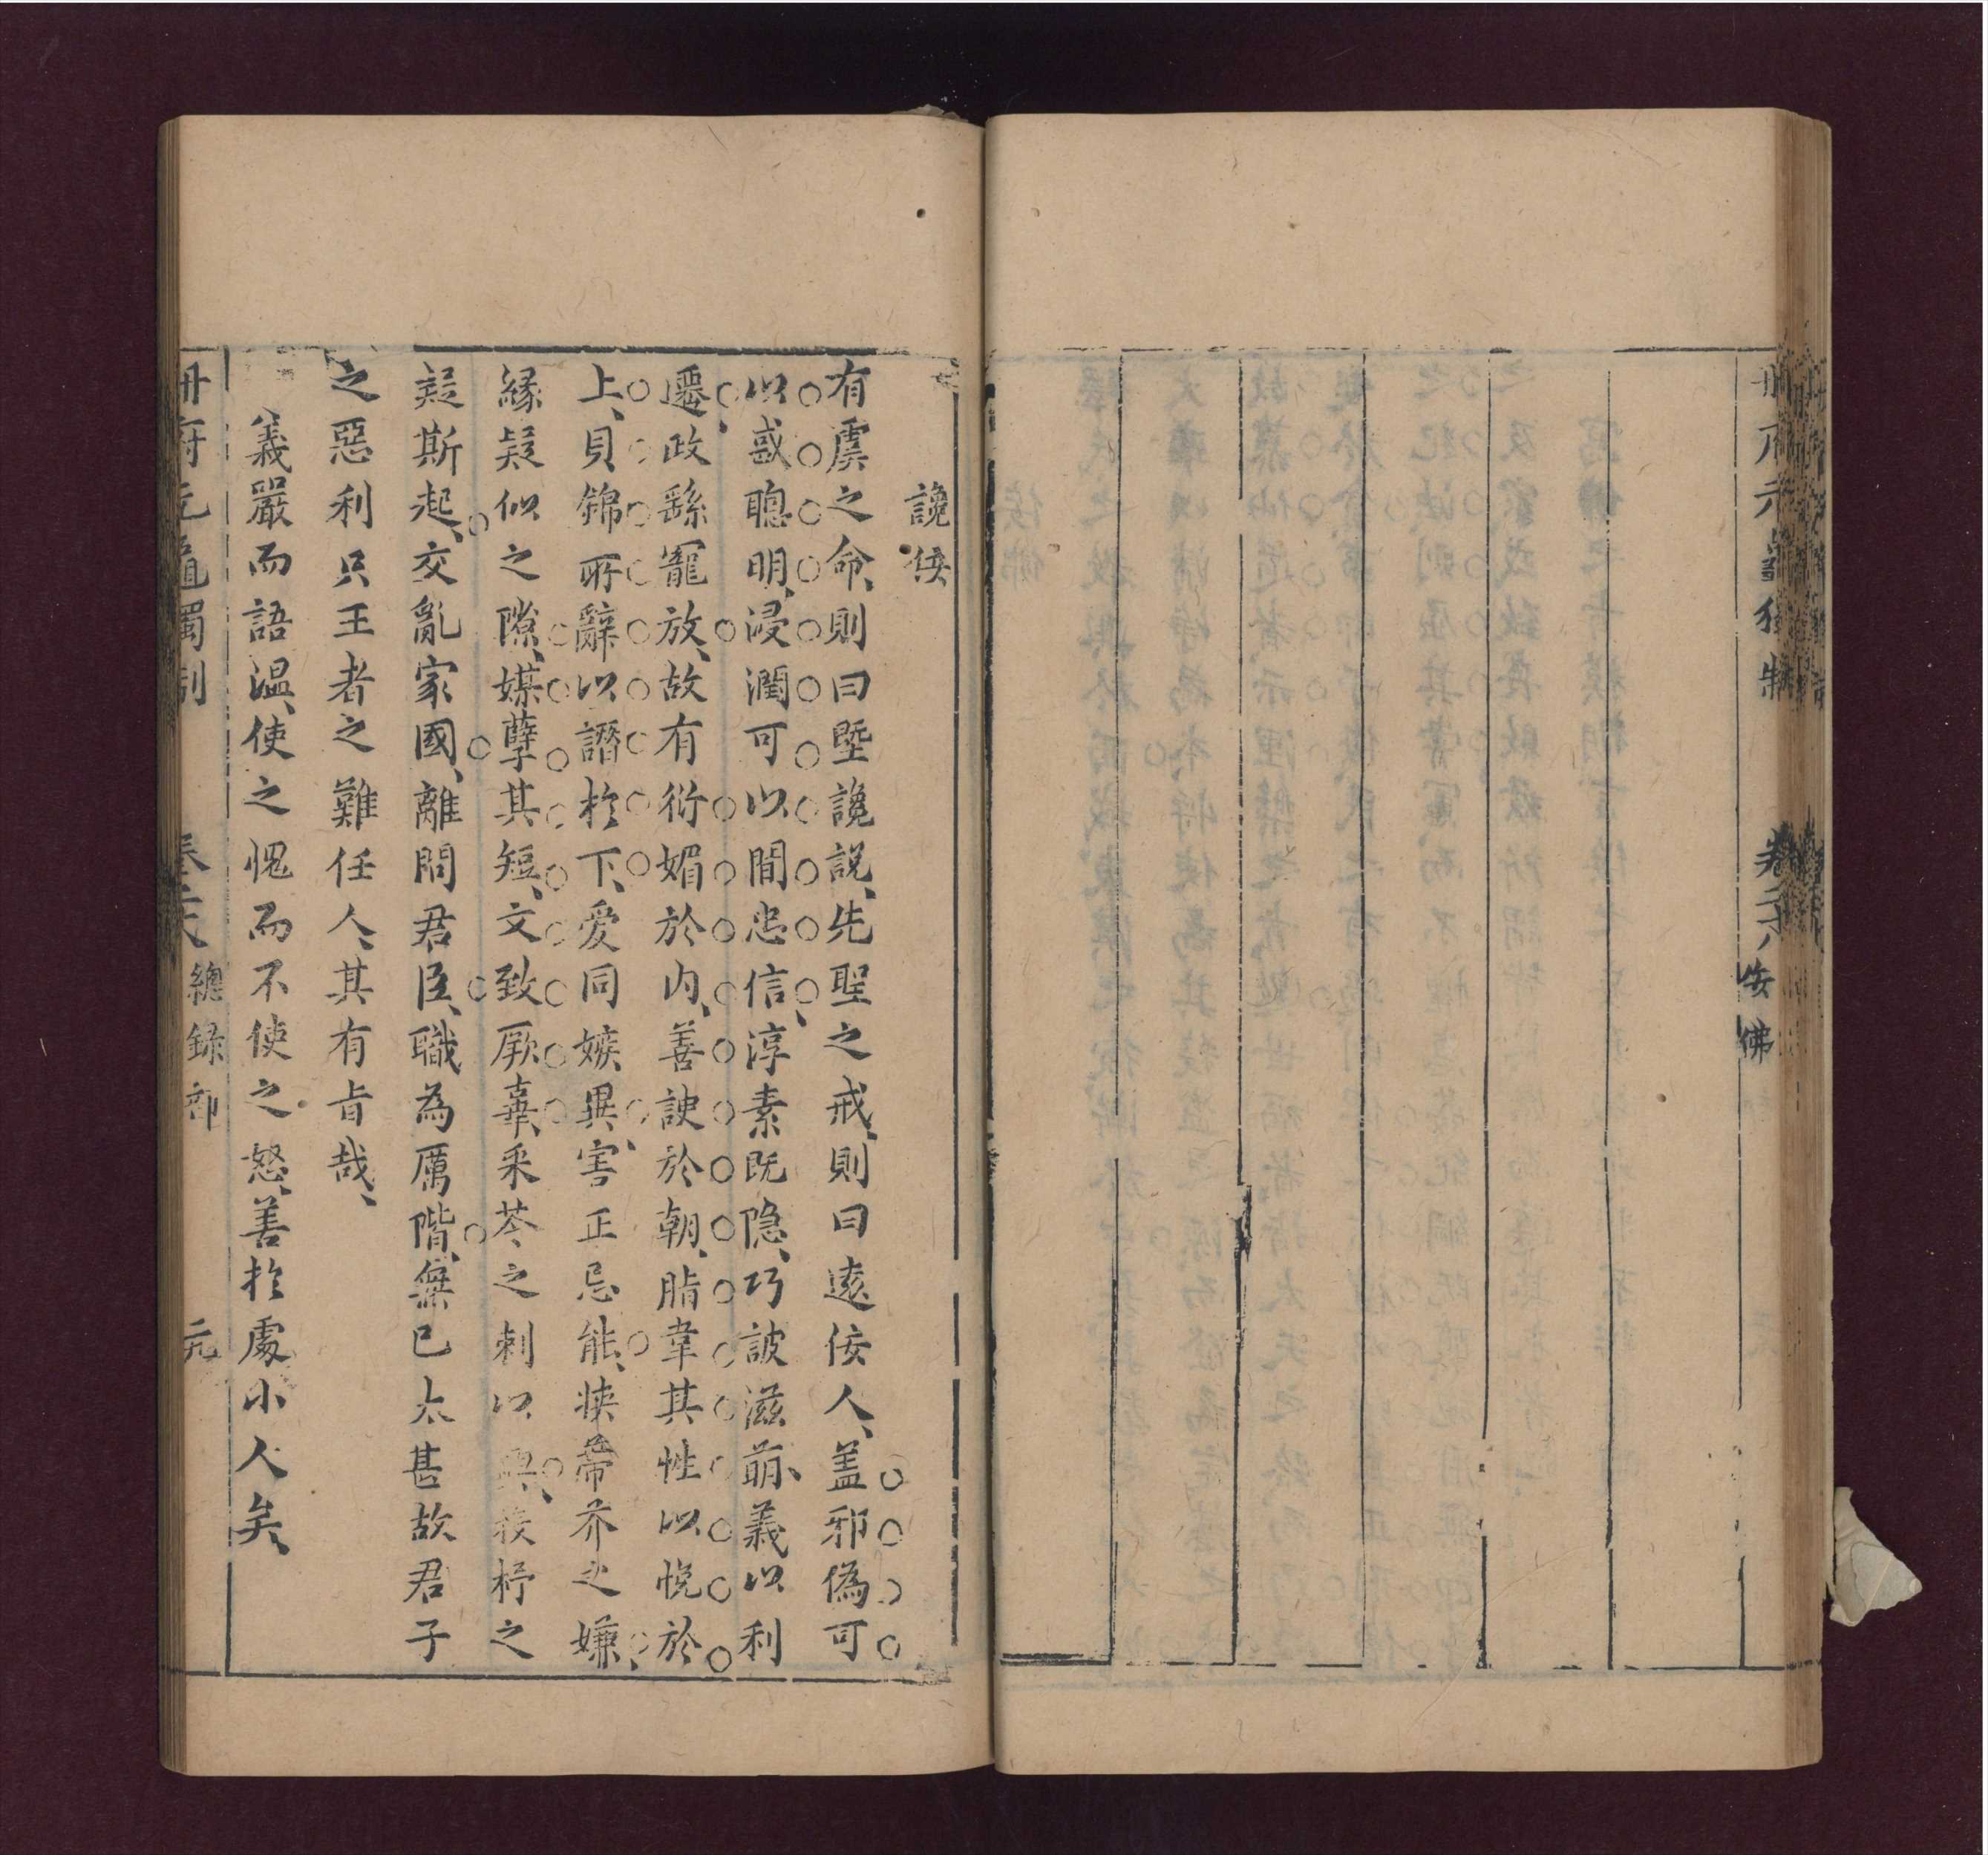 卷二六
佞佛
讒佞
有虞之命、則曰堲讒說、先聖之戒、則曰遠佞人、蓋邪偽可
以惑聰明、浸潤可以間忠信、淳素既隱、巧詖滋萌、義以利
遷、政繇寵放、故有衒媚於內、善諛於朝、脂韋其性以悅於
上、貝錦所辭以譖於下、愛同嫉異、害正忌能、挾蔕芥之嫌、
緣疑似之隙、媒孽其短、文致厥辜、采苓之刺以興、投杼之
疑斯起、交亂家國、離間君臣、職為厲階、無已太甚故君子
之惡利只王者之難任人、其有旨哉、
義嚴而語溫、使之愧而不使之怒、善於處小人矣、
冊府元龜獨制 卷二六 總錄部 元